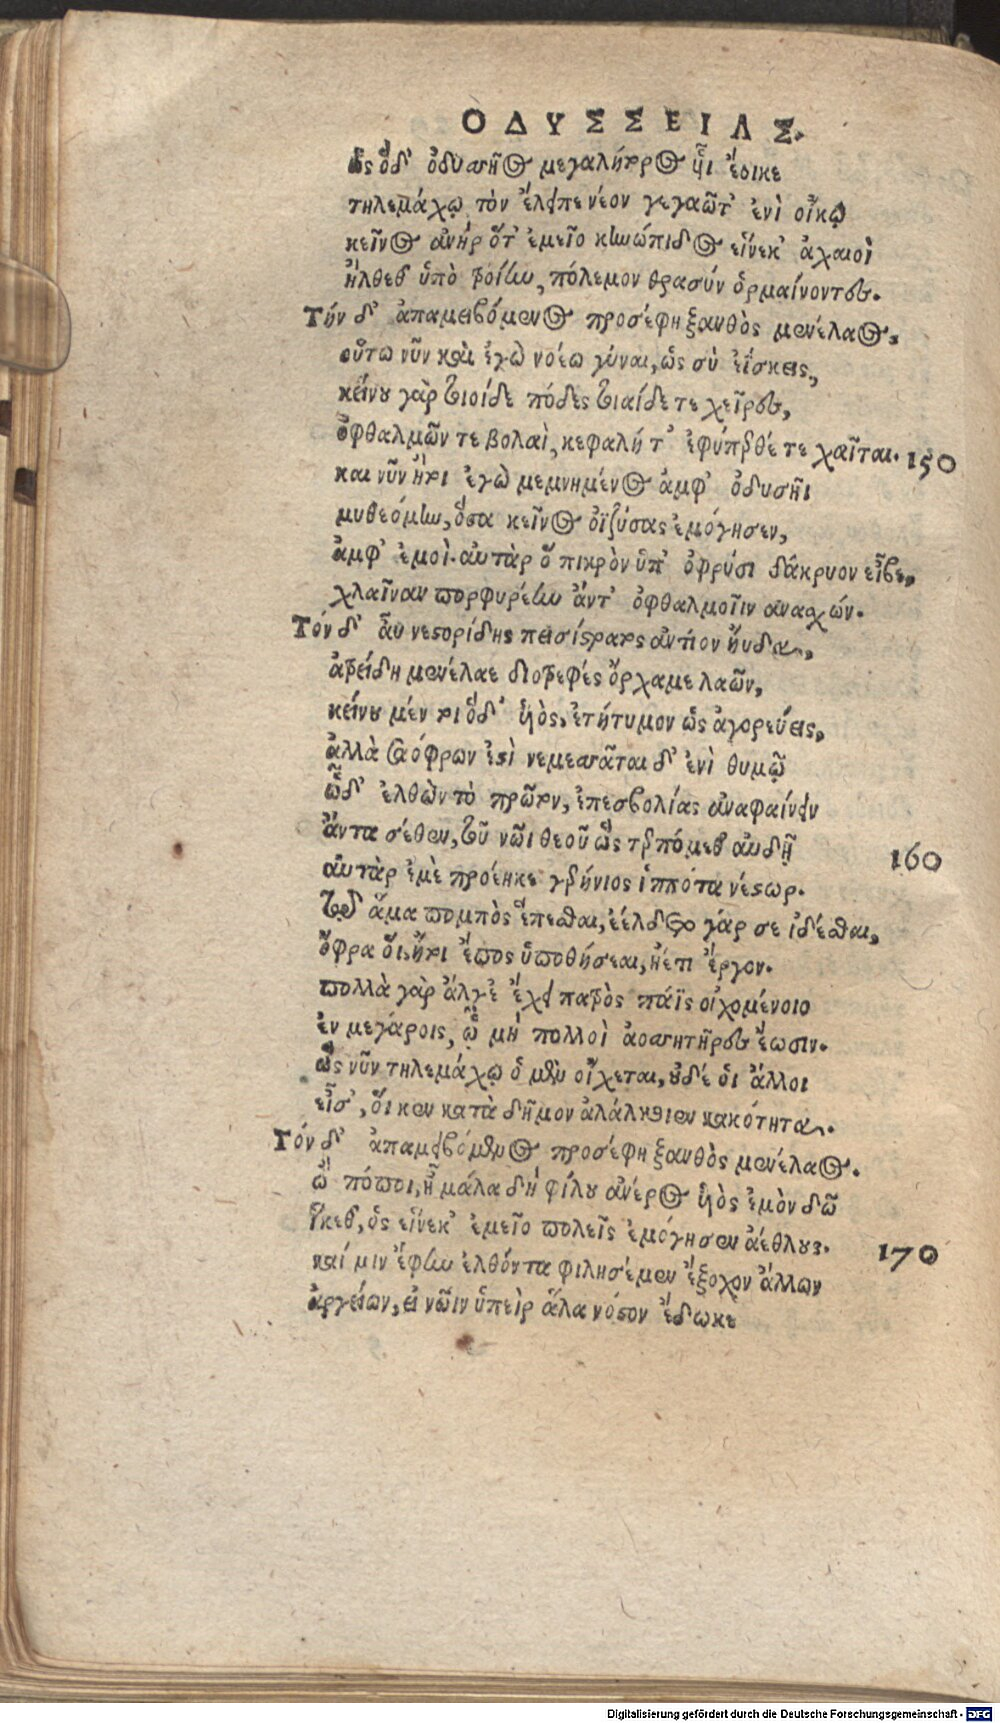 ΟΔΥΣΣΕΙΑΣ.
ὡς ὅδ' ὀδυσσῆος μεγαλήτορος υἷι ἔοικε
τηλεμάχῳ τὸν ἔλειπε νέον γεγαῶτ' ἐνὶ οἴκῳ
κεῖνος ἀνὴρ ὅτ' ἐμεῖο κυνώπιδος εἵνεκ' ἀχαιοὶ
ἤλθεθ' ὑπὸ τροίην, πόλεμον θρασύν ὁρμαίνοντες.
Τήν δ' ἀπαμειβόμενος προσέφη ξανθὸς μενέλαος,
οὕτω νῦν καὶ ἐγὼ νοέω γύναι, ὡς σὺ ἐΐσκεις,
κείνου γὰρ τοιοίδε πόδες τοιαίδε τε χεῖρες,
ὀφθαλμῶν τε βολαὶ, κεφαλή τ' ἐφύπερθέ τε χαῖται. 150
καὶ νῦν ἤτοι ἐγὼ μεμνημένος ἀμφ' ὀδυσῆι
μυθεόμην, ὅσα κεῖνος ὀϊζύσας ἐμόγησεν,
ἀμφ' ἐμοὶ. αὐτὰρ ὃ πικρὸν ὑπ' ὀφρύσι δάκρυον εἶβε,
χλαῖναν πορφυρέην ἄντ' ὀφθαλμοῖιν ἀνασχών.
Τόν δ' αὖ νεστορίδης πεισίστρατος ἀντίον ηὔδα,
ἀτρείδη μενέλαε διοτρεφές ὄρχαμε λαῶν,
κείνου μέν τοι ὅδ' υἱὸς, ἐτήτυμον ὡς ἀγορεύεις,
ἀλλὰ σαόφρων ἐστὶ νεμεσσᾶται δ' ἐνὶ θυμῷ
ὧδ' ἐλθὼν τὸ πρῶτον, ἐπεσβολίας ἀναφαίνειν
ἄντα σέθεν, τοῦ νῶι θεοῦ ὣς τερπόμεθ' αὐδῇ 160
αὐτὰρ ἐμὲ προέηκε γερήνιος ἱππότα νέστωρ.
τῷ ἅμα πομπὸς ἕπεσθαι, ἐέλδετο γάρ σε ἰδέσθαι,
ὄφρα οἵ, ἤτοι ἔπος ὑποθήσεαι, ἠέ τι ἔργον.
πολλὰ γὰρ ἄλγε' ἔχει πατρὸς πάϊς οἰχομένοιο
ἐν μεγάροις, ᾧ μὴ πολλοὶ ἀοσσητῆρες ἔωσιν.
ὣς νῦν τηλεμάχῳ ὁ μὲν οἴχεται, οὐδέ οἱ ἄλλοι
εἶσ', οἵ κεν κατὰ δῆμον ἀλάλκοιεν κακότητα.
Τόν δ' ἀπαμειβόμενος προσέφη ξανθὸς μενέλαος.
ὢ πόποι, ἦ μάλα δὴ φίλου ἀνέρος υἱὸς ἐμὸν δῶ
ἵκεθ', ὃς εἵνεκ' ἐμεῖο πολεῖς ἐμόγησεν ἀέθλους. 170
καί μιν ἔφην ἐλθόντα φιλησέμεν ἔξοχον ἄλλων
ἀργείων, εἰ νῶιν ὑπεὶρ ἅλα νόστον ἔδωκε
Digitalisierung gefördert durch die Deutsche Forschungsgemeinschaft - DFG